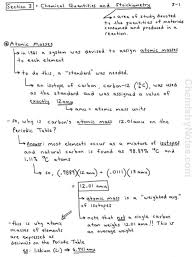 Section 3 - Chemical Quantities and Stoichiometry 3-1
→ a area of study devoted
to the quantities of materials
consumed and produced in a
reaction.
Atomic Masses
→ in 1961 a system was devised to assign atomic masses
to each element
→ to do this, a "standard" was needed.
→ an isotope of carbon, carbon-12 was used
as the standard and was assigned a value of
exactly 12 amu
→ amu = atomic mass units
→ So, why is carbon's atomic mass 12.01 amu on
the Periodic Table?
→ Answer: most elements occur as a mixture of isotopes
and natural carbon is found as 98.89% 12C and
1.11% 13C atoms
→ So, (.9889)(12 amu) + (.0111)(13 amu)
= 12.01 amu
→ atomic mass is a "weighted avg"
of isotopes
→ this is why atomic
masses of elements
are expressed as
decimals on the Periodic Table
→ note that not a single carbon
atom weighs 12.01 amu!! This is
an average weight
eg. Lithium (Li) → 6.941 amu
ChemistryNotes.com